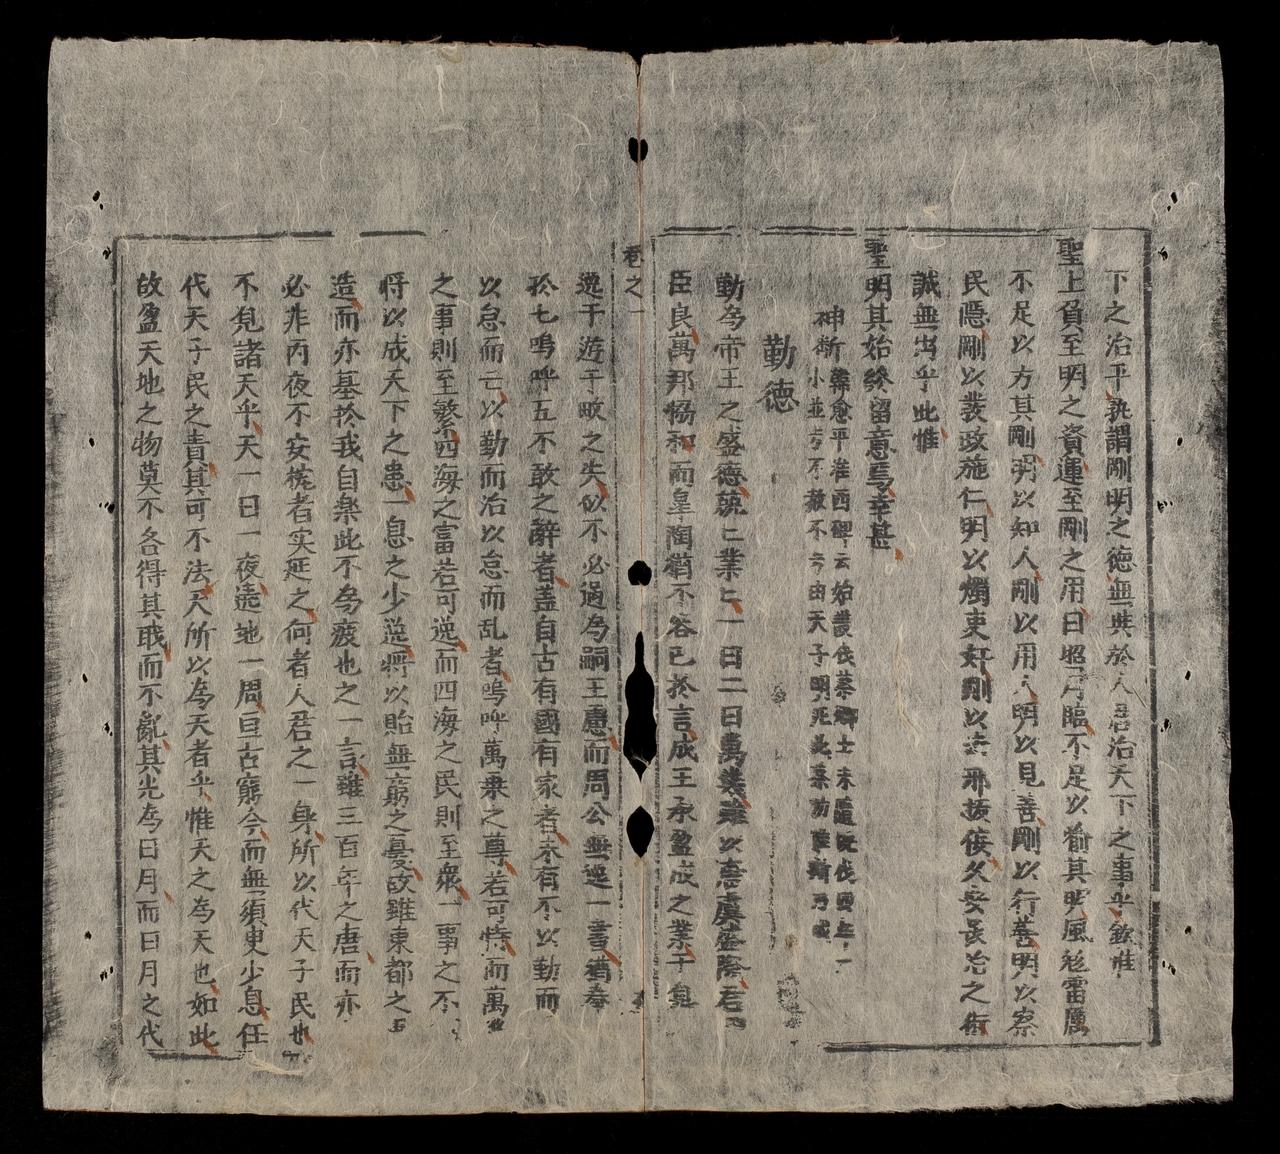 下之治平孰謂剛明之德無與於人君治天下之事乎欽惟
聖上負至明之資運至剛之用日昭月臨不足以喻其明風飛雷厲
不足以方其剛明以知人剛以用人明以見善剛以行善明以察
民隱剛以發政施仁明以燭吏奸剛以去邪拔佞久安長治之術
誠無出乎此惟
聖明其始終留意焉幸甚
神斷韓愈平淮西碑云始議伐蔡卿士未隨既伐四年
小並 不赦不 由天子明凡此蔡功惟斷乃成
勤德
勤為帝王之盛德兢〻業〻一日二日萬幾雖以唐虞盛際君
臣良萬邦協和而皋陶猶不容已於言成王承盈成之業于
卷之一
逸于遊于畋之失似不必過為嗣王慮而周公無逸一書猶奉
於七嗚呼五不敢之辭者盖自古有國有家者未有不以勤而
以怠而亡以勤而治以怠而乱者嗚呼萬乘之尊若可恃而萬
之事則至繁四海之富若可逸而四海之民則至衆一事之不
將以成天下之患一息之少逸將以貽無窮之憂故雖東都之
造而亦基於我自樂此不為疲也之一言雖三百年之唐而亦
必非丙夜不安枕者实延之何者人君之一身所以代天子民也
不見諸天乎天一日一夜遶地一周亘古窮今而無須臾少息任
代天子民之責其可不法天所以為天者乎惟天之為天也如此
故盈天地之物莫不各得其職而不亂其光為日月而日月之代